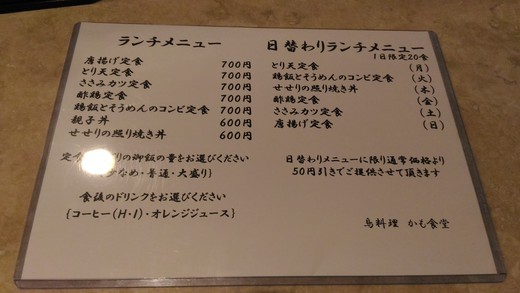 ランチメニュー
唐揚げ定食 700円
とり天定食 700円
ささみカツ定食 700円
酢鶏定食 700円
鶏飯とそうめんのコンビ定食 700円
親子丼 600円
せせりの照り焼き丼 600円
の御飯の量をお選びください
少なめ・普通・大盛り}
食後のドリンクをお選びください
{コーヒー(H・I)・オレンジジュース}
日替わりランチメニュー
1日限定20食
とり天定食 (月)
鶏飯とそうめんのコンビ定食 (火)
せせりの照り焼き丼 (水)
酢鶏定食 (金)
ささみカツ定食 (土)
唐揚げ定食 (日)
日替わりメニューに限り通常価格より
50円引きでご提供させて頂きます
鳥料理 かも食堂